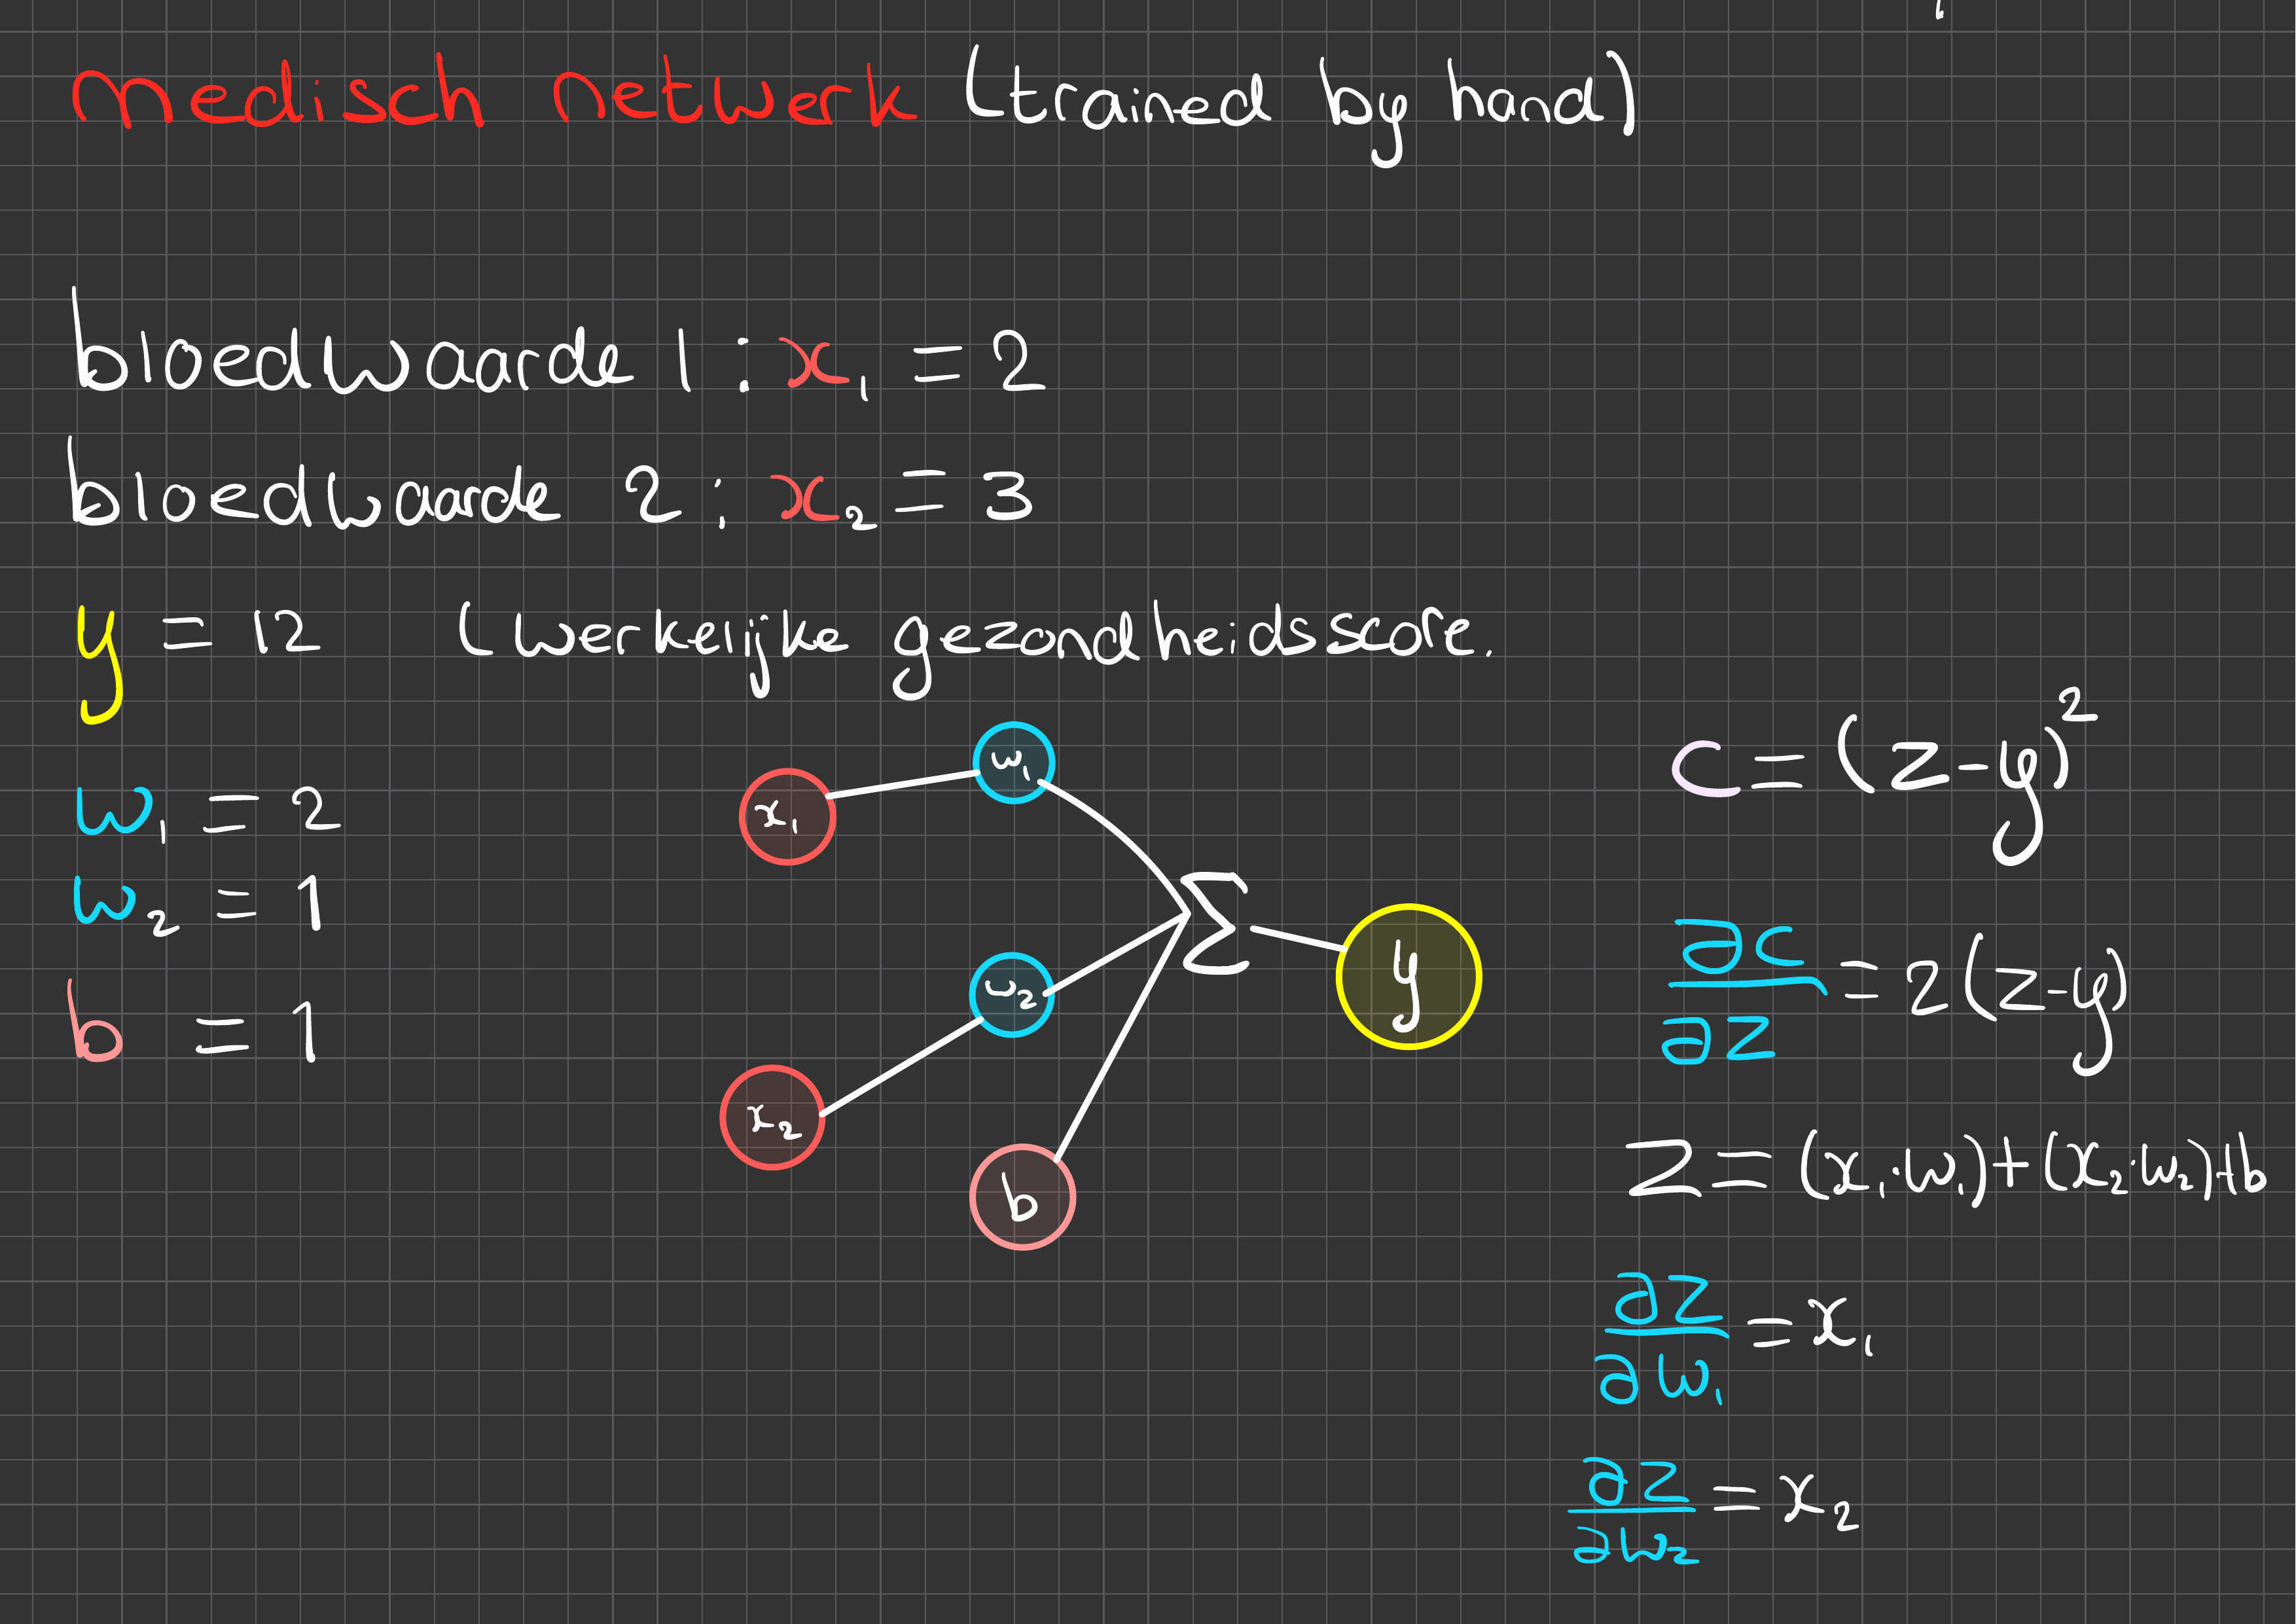 medisch netwerk (trained by hand)
bloedwaarde 1 : x₁ = 2
bloedwaarde 2 : x₂ = 3
y = 12 (werkelijke gezondheidsscore.
w₁ = 2
w₂ = 1
b = 1
x₁
w₁
w₂
x₂
b
Σ
y
C = (z-y)²
∂C/∂z = 2(z-y)
z = (x₁·w₁)+(x₂·w₂)+b
∂z/∂w₁ = x₁
∂z/∂w₂ = x₂